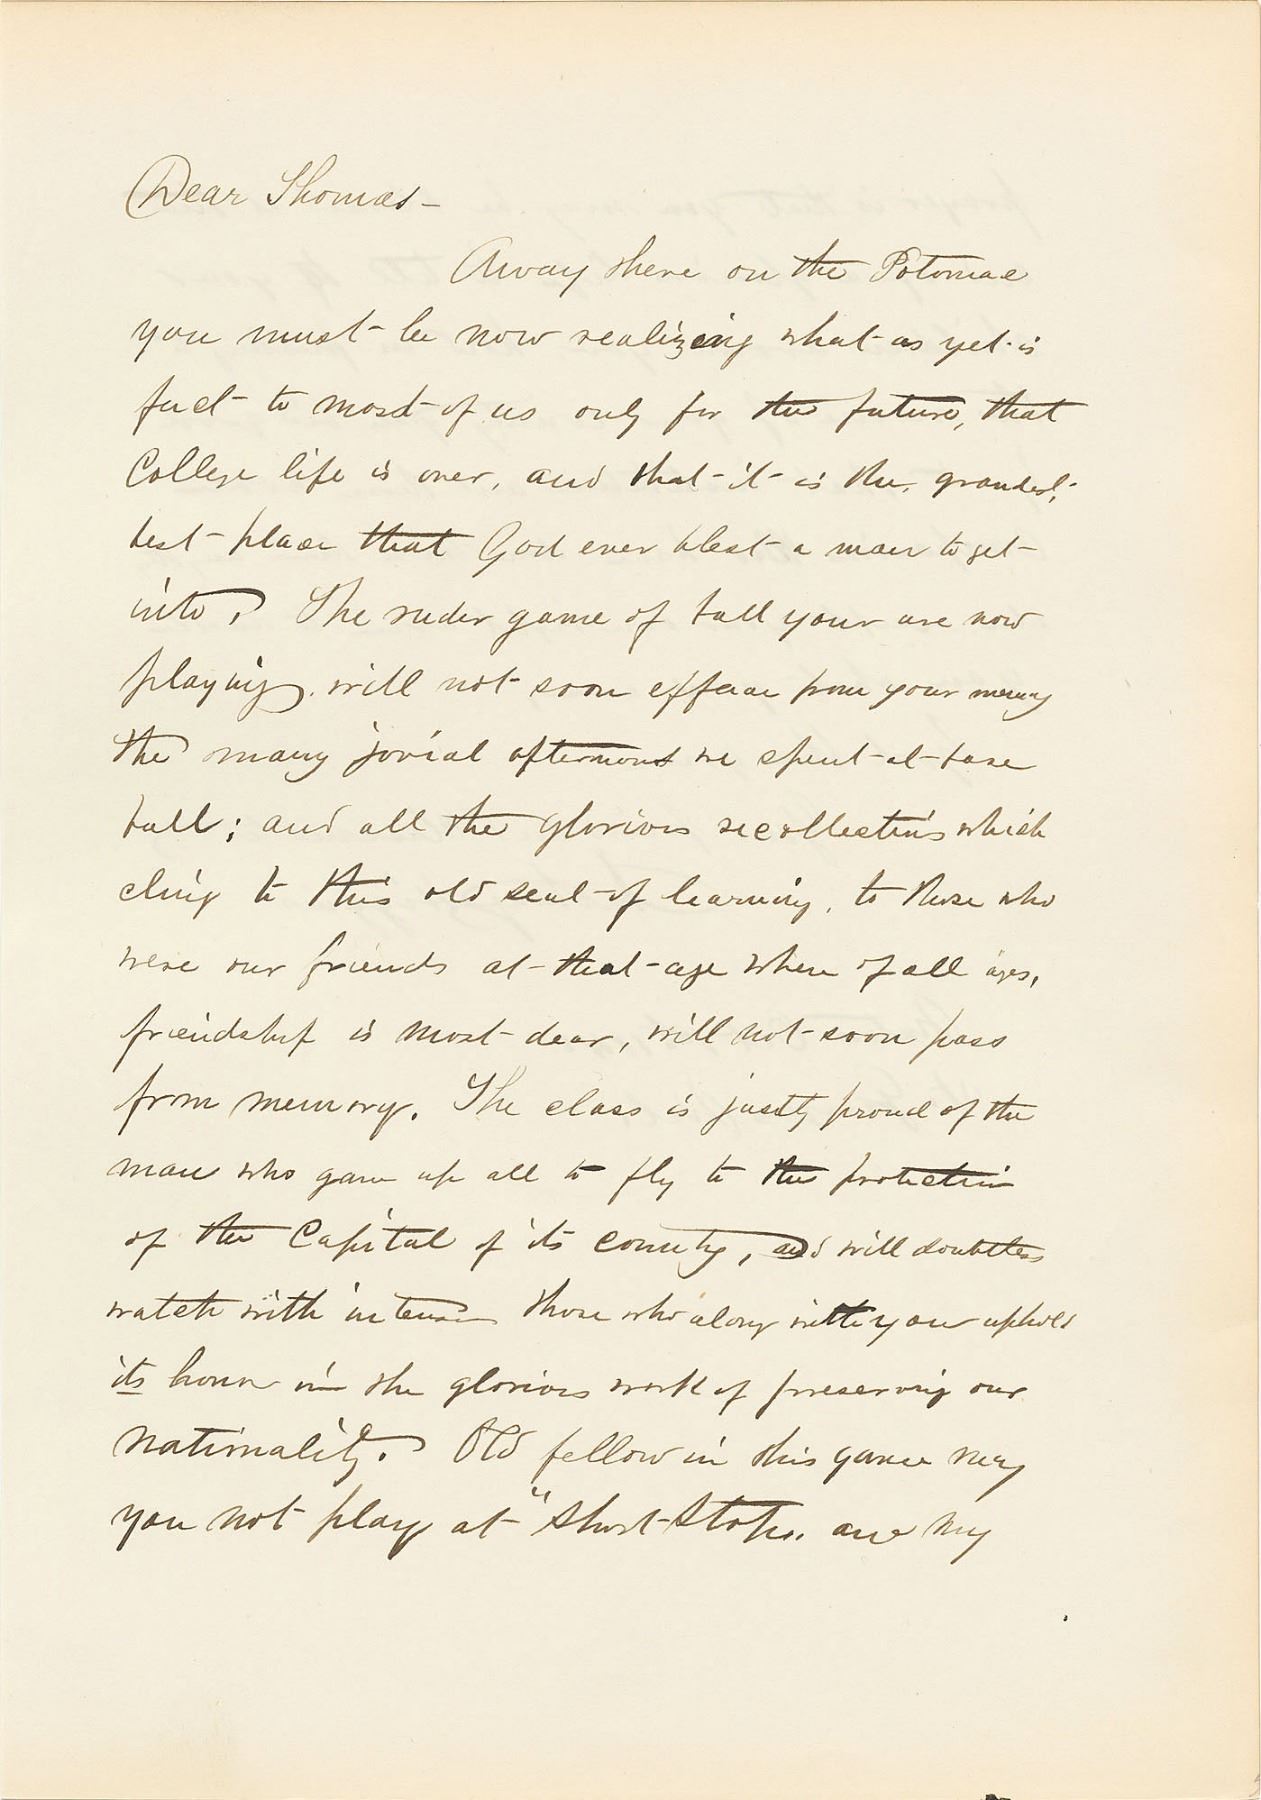 Dear Thomas –
Away there on the Potomac
you must be now realizing what as yet is
fact to most of us only for the future, that
College life is over, and that it is the grandest,
best place that God ever blest a man to get
into. The ruder game of ball your are now
playing will not soon efface from your memory
the many jovial afternoons we spent at base
ball; and all the glorious recollections which
cling to this old seat of learning, to those who
were our friends at that age when of all ages,
friendship is most dear, will not soon pass
from memory. The class is justly proud of the
man who gave up all to fly to the protection
of the Capital of its country, and will doubtless
watch with those who along with you uphold
its honor in the glorious work of preserving our
nationality. Old fellow in this game may
you not play at "Short Stop" are my